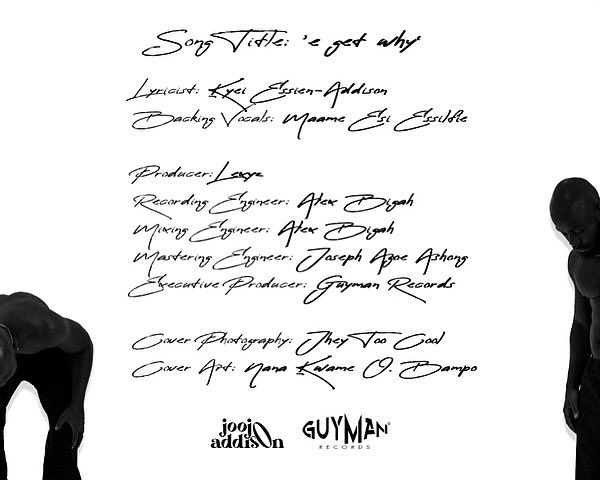 Song Title: 'e get why'
Lyricist: Kyei Essien-Addison
Backing Vocals: Maame Esi Essilfie
Producer: Lexyz
Recording Engineer: Alex Bigah
Mixing Engineer: Alex Bigah
Mastering Engineer: Joseph Azoe Ashong
Executive Producer: Guyman Records
Cover Photography: JheyToo Cool
Cover Art: Nana Kwame O. Bampo
jooj addison
GUYMAN
RECORDS